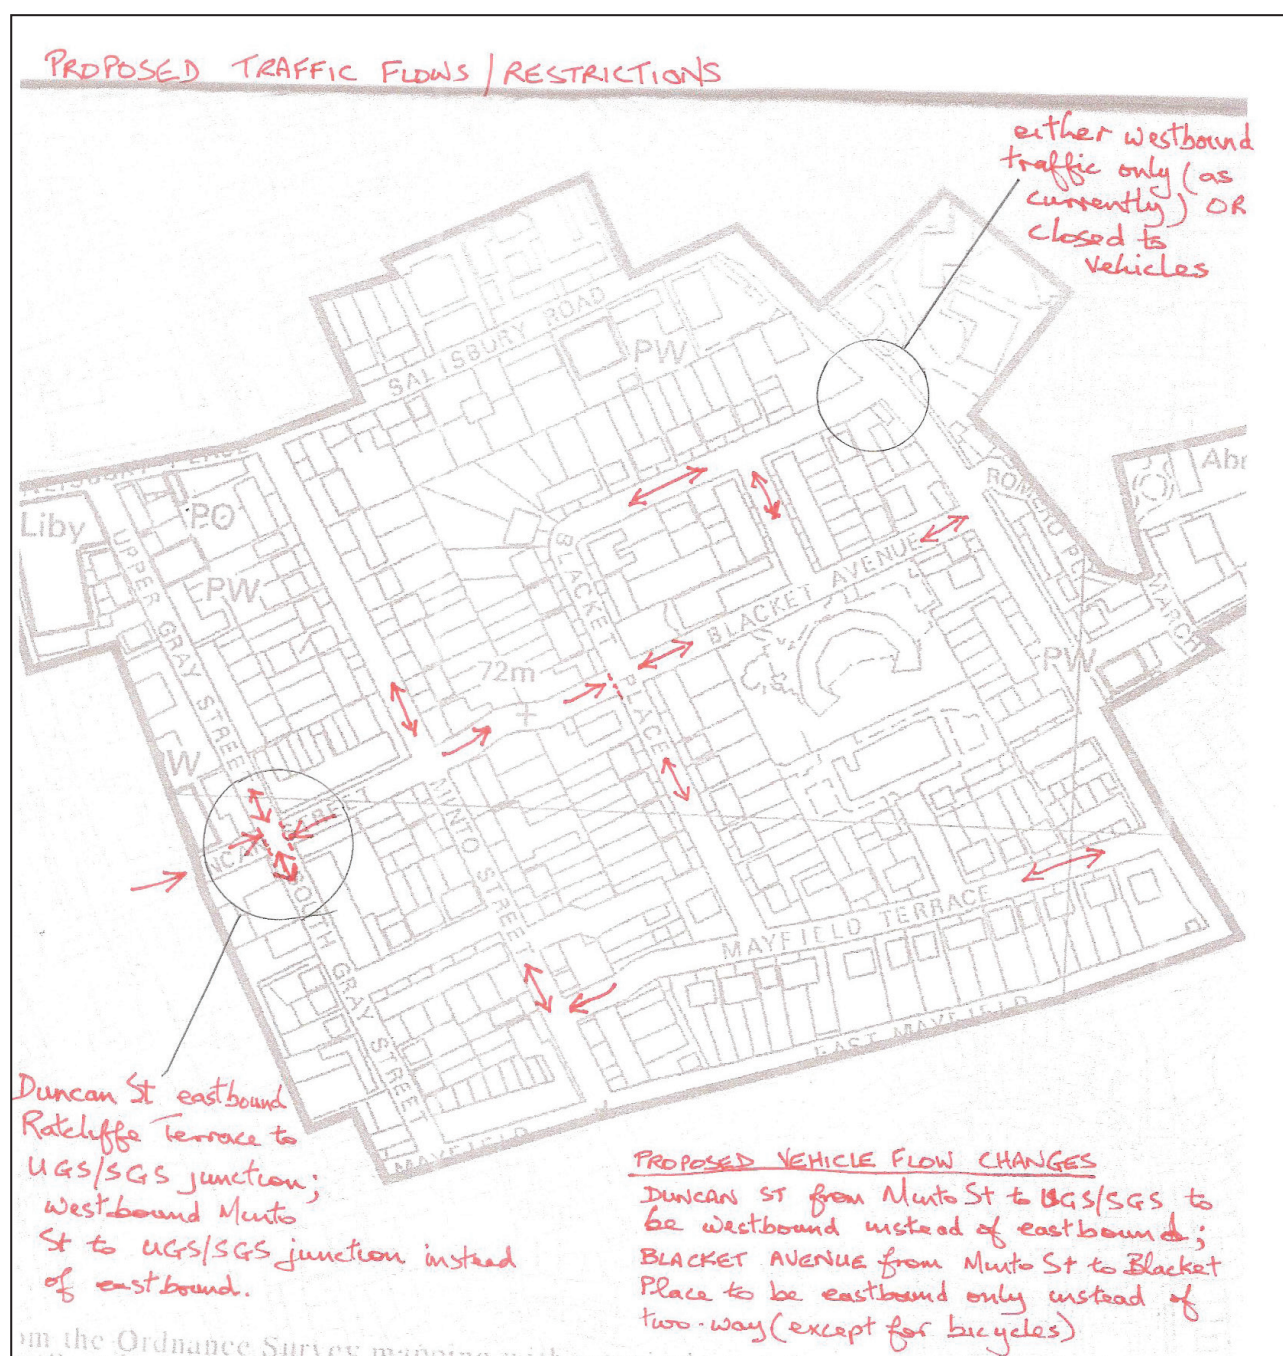 PROPOSED TRAFFIC FLOWS / RESTRICTIONS
either westbound
traffic only (as
currently) OR
closed to
vehicles
SALISBURY ROAD
PW
PLACE
Liby
PO
PW
UPPER GRAY STREET
BLACKET PLACE
BLACKET AVENUE
ROMERO PL
MARCH
PW
72m
W
MINTO STREET
SOUTH GRAY STREET
MAYFIELD TERRACE
EAST MAYFIELD
MAYFIELD
Duncan St eastbound
Ratcliffe Terrace to
UGS/SGS junction;
westbound Minto
St to UGS/SGS junction instead
of eastbound.
PROPOSED VEHICLE FLOW CHANGES
DUNCAN ST from Minto St to UGS/SGS to
be westbound instead of eastbound;
BLACKET AVENUE from Minto St to Blacket
Place to be eastbound only instead of
two-way (except for bicycles)
om the Ordnance Survey mapping with